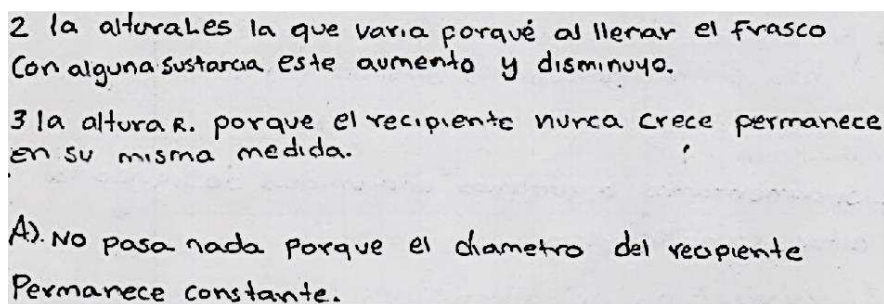 2 la alturaL es la que varia porqué al llenar el frasco
con alguna sustancia este aumento y disminuyo.
3 la altura R. porque el recipiente nunca crece permanece
en su misma medida.
A). No pasa nada porque el diametro del recipiente
Permanece constante.